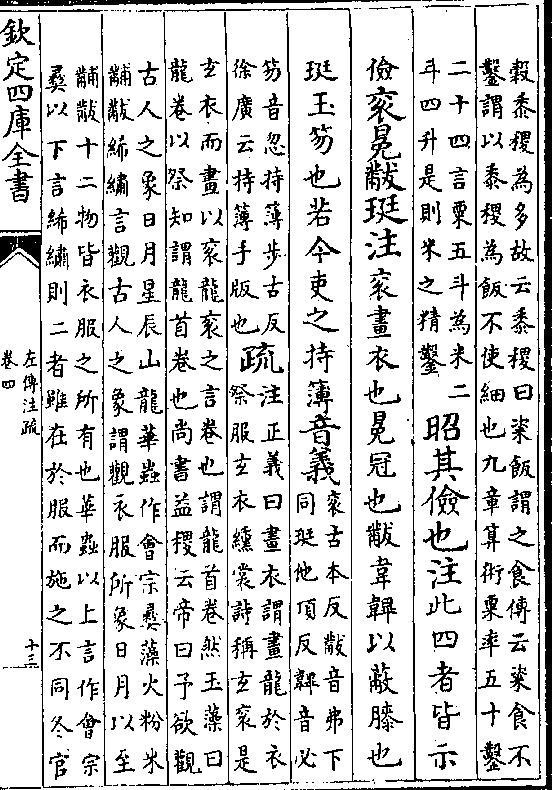 穀黍稷為多故云黍稷曰粢飯謂之食傳云粢食不
鑿謂以黍稷為飯不使細也九章算術粟率五十鑿
二十四言粟五斗為米二
斗四升是則米之精鑿
昭其儉也注此四者皆示
儉袞冕黻珽注袞畫衣也冕冠也黻韋韠以蔽膝也
珽玉笏也若今吏之持簿音義
袞古本反黻音弗下
同珽他頂反韠音必
笏音忽持簿步古反
徐廣云持簿手版也
疏
注正義曰畫衣謂畫龍於衣
祭服玄衣纁裳詩稱玄袞是
玄衣而畫以袞龍袞之言卷也謂龍首卷然玉藻曰
龍卷以祭知謂龍首卷也尚書益稷云帝曰予欲觀
古人之象日月星辰山龍華蟲作會宗彝藻火粉米
黼黻絺繡言觀古人之象謂觀衣服所象日月以至
黼黻十二物皆衣服之所有也華蟲以上言作會宗
彝以下言絺繡則二者雖在於服而施之不同冬官
欽定四庫全書
左傳注疏
卷四
十三